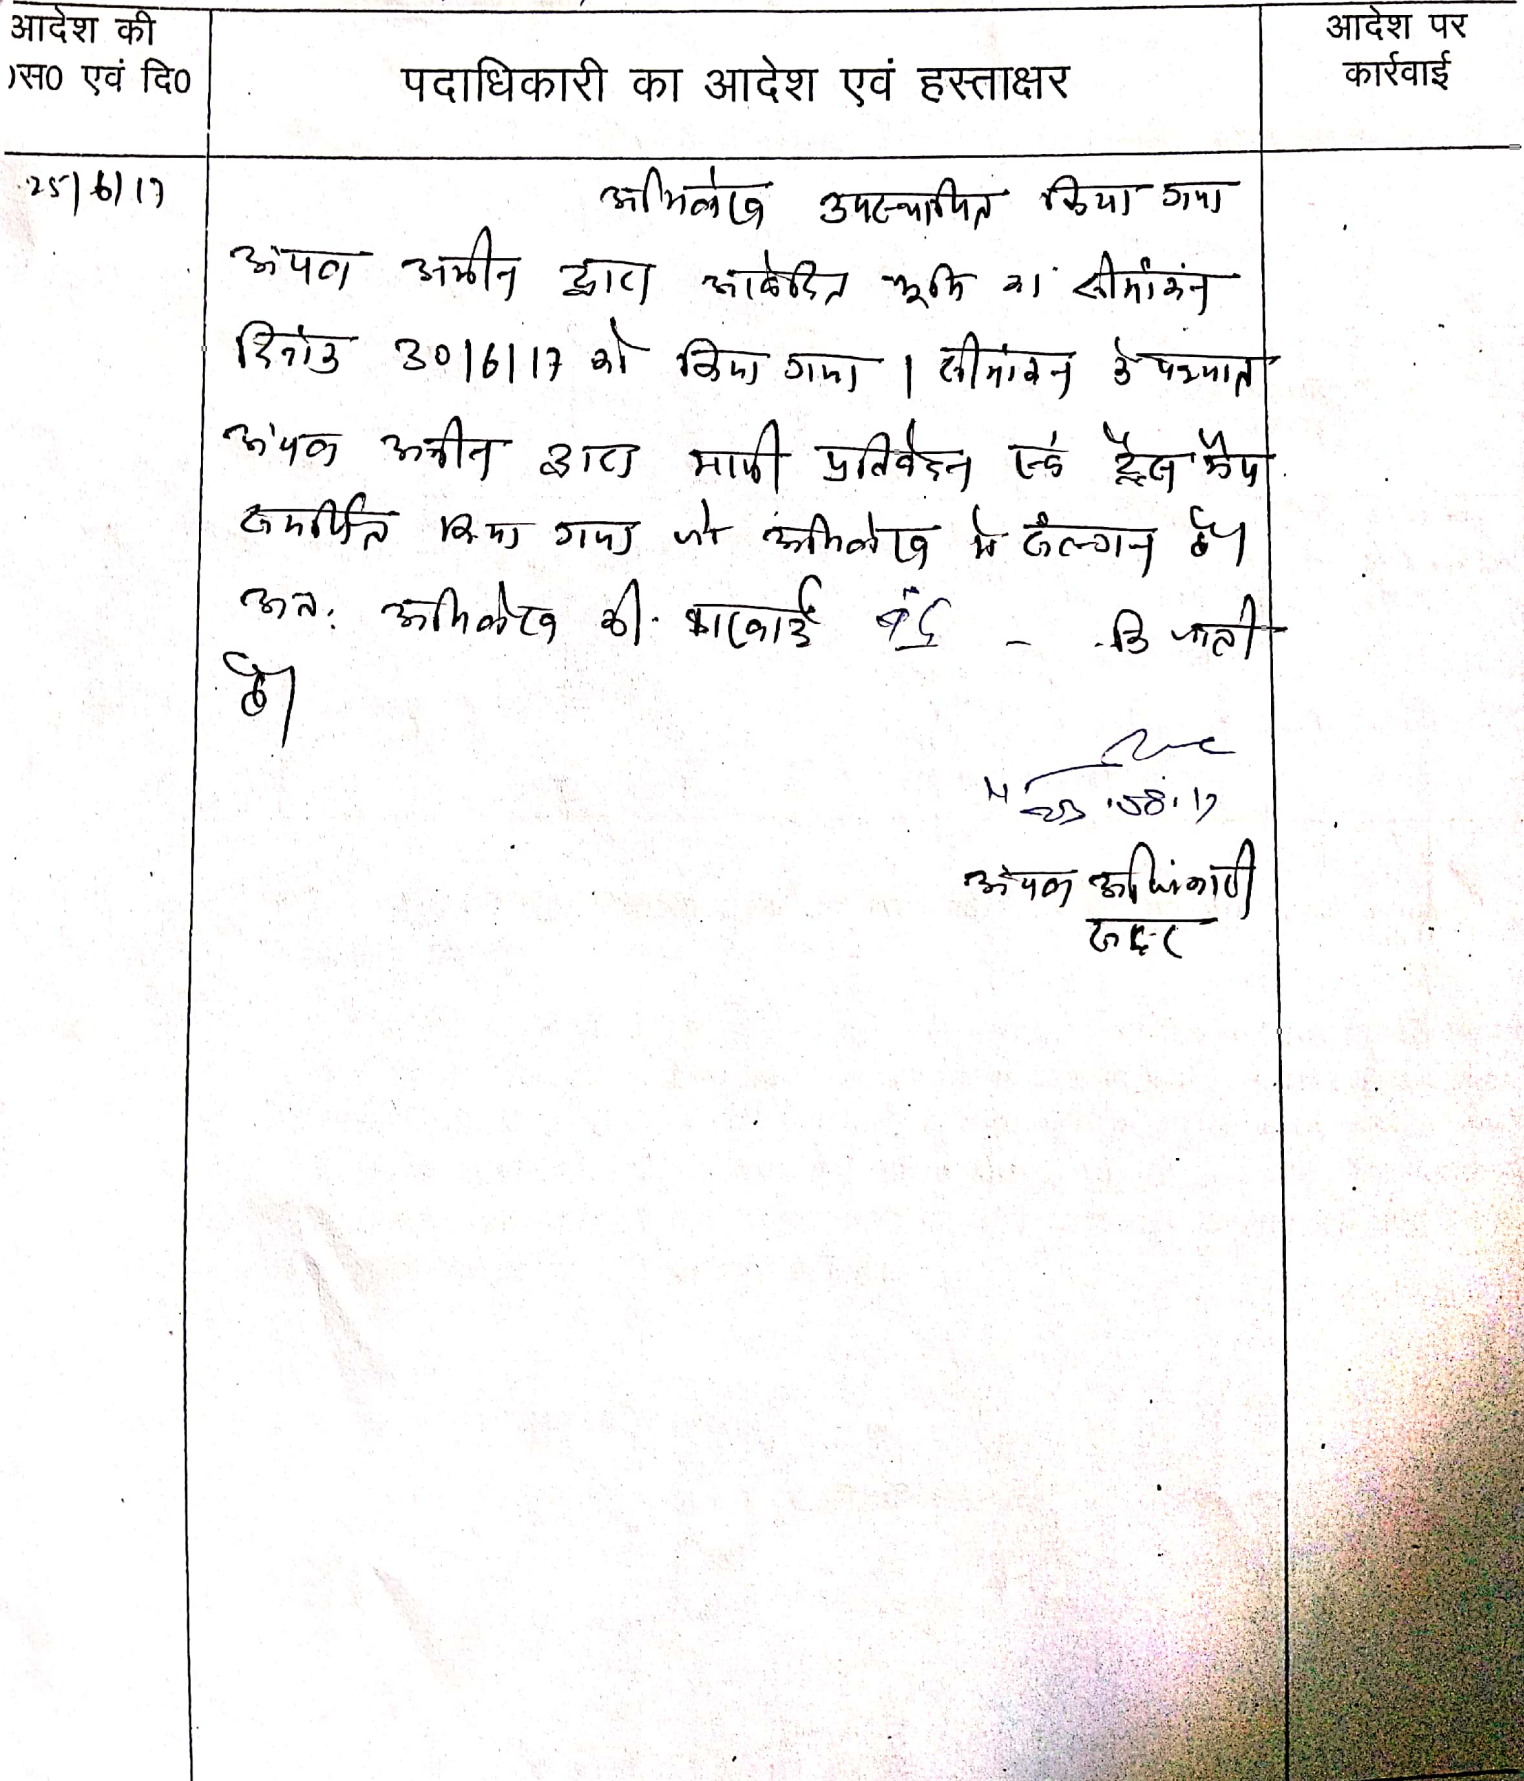 आदेश की
स0 एवं दि0
पदाधिकारी का आदेश एवं हस्ताक्षर
आदेश पर
कार्रवाई
25/6/17
अभिलेख उपस्थापित किया गया
अंचल अमीन द्वारा आवेदित भूमि का सीमांकन
दिनांक 30/6/17 को किया गया । सीमांकन के पश्चात
अंचल अमीन द्वारा मापी प्रतिवेदन एवं ट्रेस मैप
समर्पित किया गया जो अभिलेख में संलग्न है।
अतः अभिलेख की कारवाई बंद - कि जाती
है।
अंचल अधिकारी
सदर